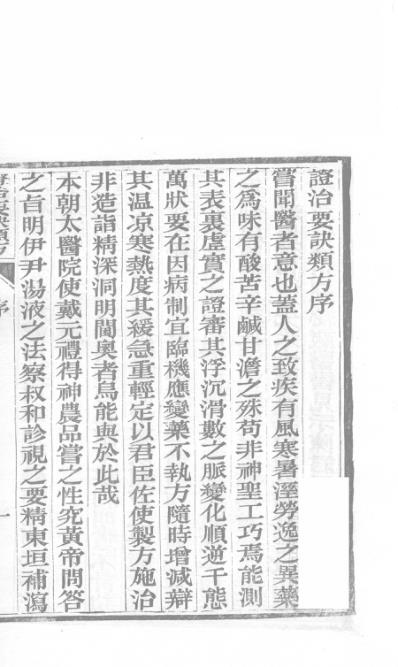 證治要訣類方序
嘗聞醫者意也蓋人之致疾有風寒暑溼勞逸之異藥
之爲味有酸苦辛鹹甘澹之殊苟非神聖工巧焉能測
其表裏虛實之證審其浮沉滑數之脈變化順逆千態
萬狀要在因病制宜臨機應變藥不執方隨時增減辯
其温凉寒熱度其緩急重輕定以君臣佐使製方施治
非造詣精深洞明閫奧者烏能與於此哉
本朝太醫院使戴元禮得神農品嘗之性究黃帝問答
之旨明伊尹湯液之法察叔和診視之要精東垣補瀉
序
一